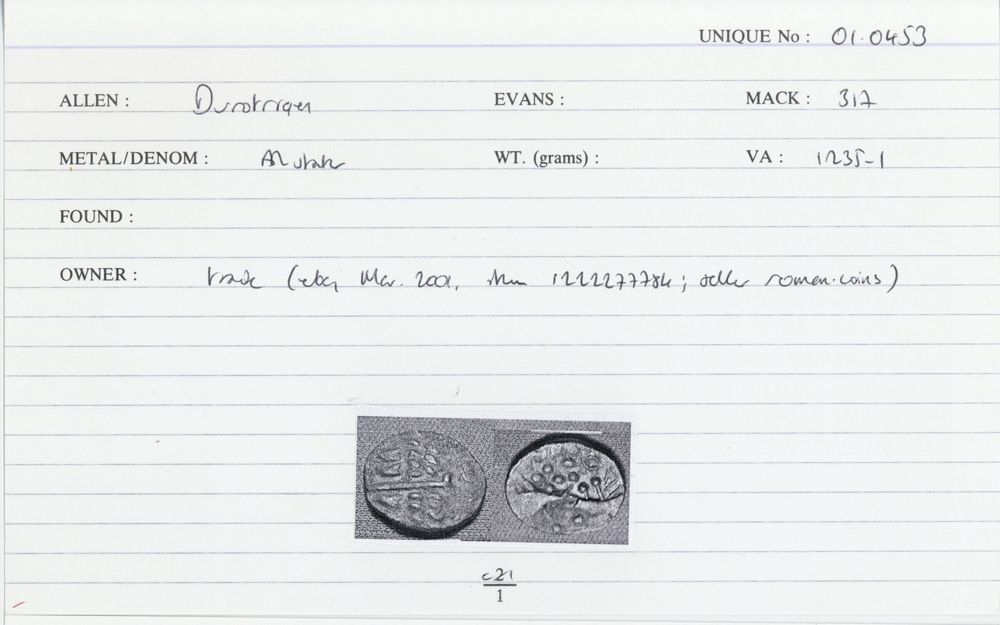 UNIQUE No : 01.0453
ALLEN : Durotrigan EVANS : MACK : 317
METAL/DENOM : AR stater WT. (grams) : VA : 1235-1
FOUND :
OWNER : trade (ebay Mar. 2001, item 1222277784; seller roman.coins)
c21
1